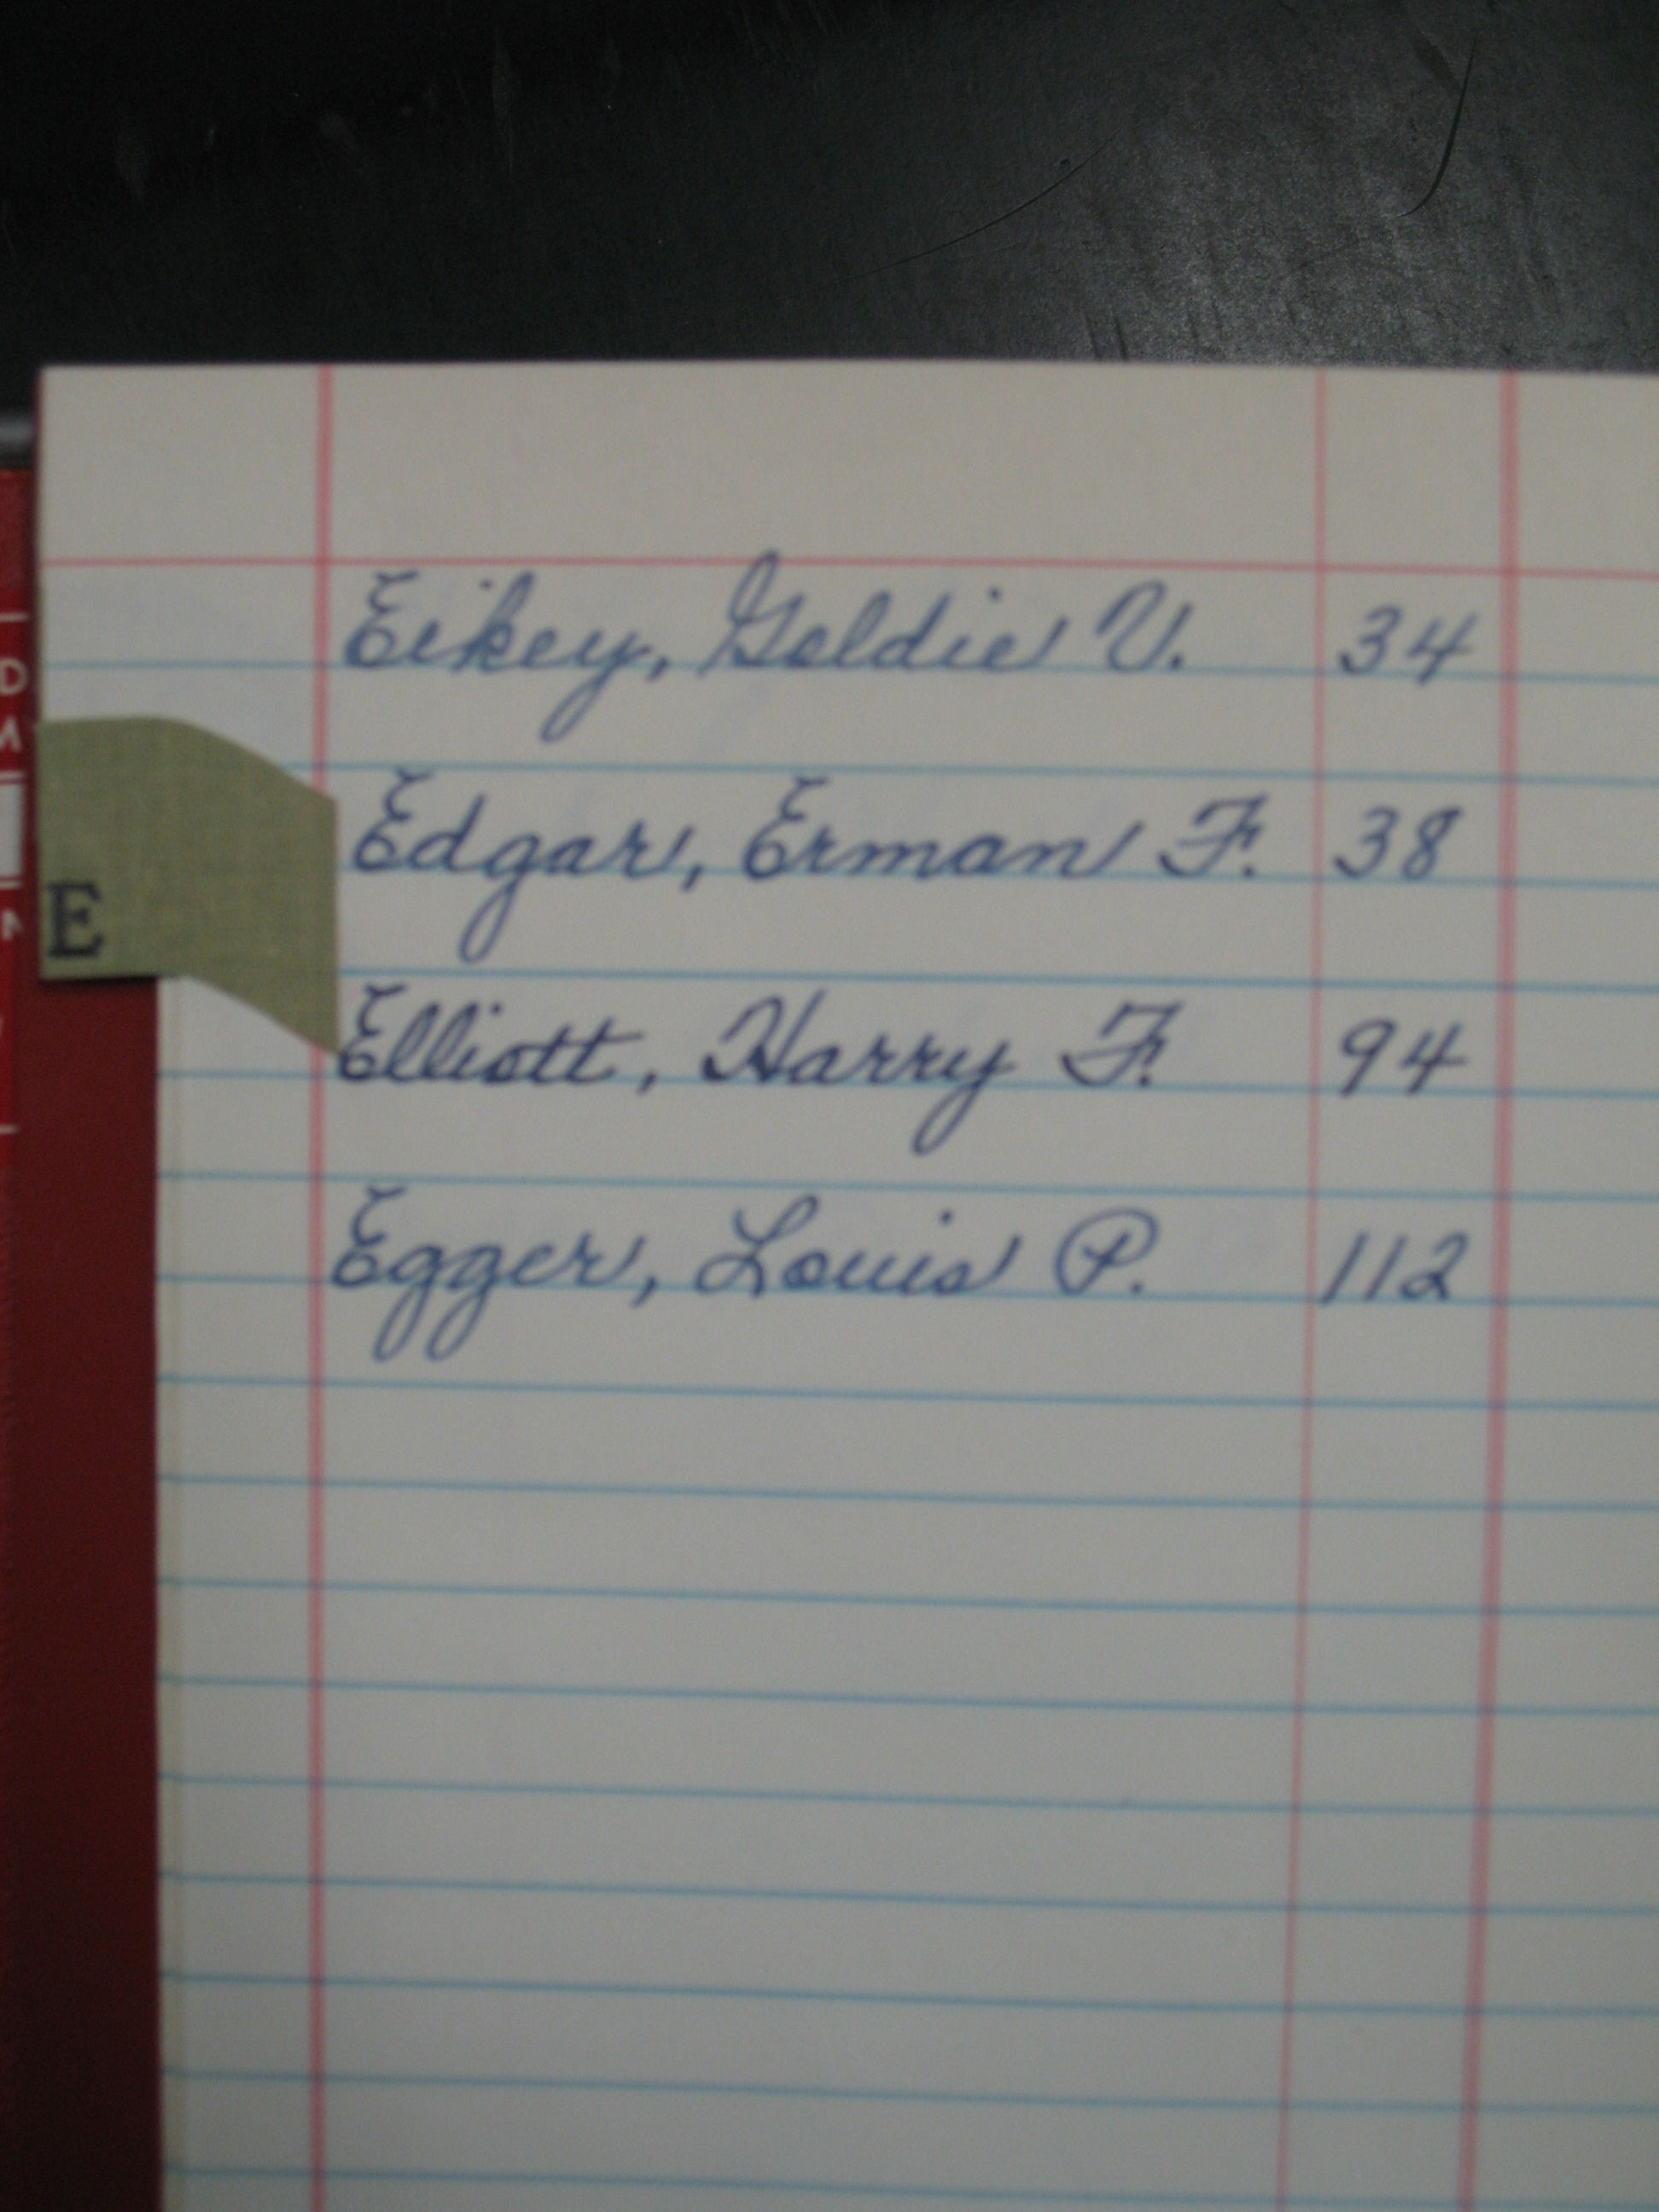 Eikey, Goldie V. 34
Edgar, Erman F. 38
E
Elliott, Harry F. 94
Egger, Louis P. 112